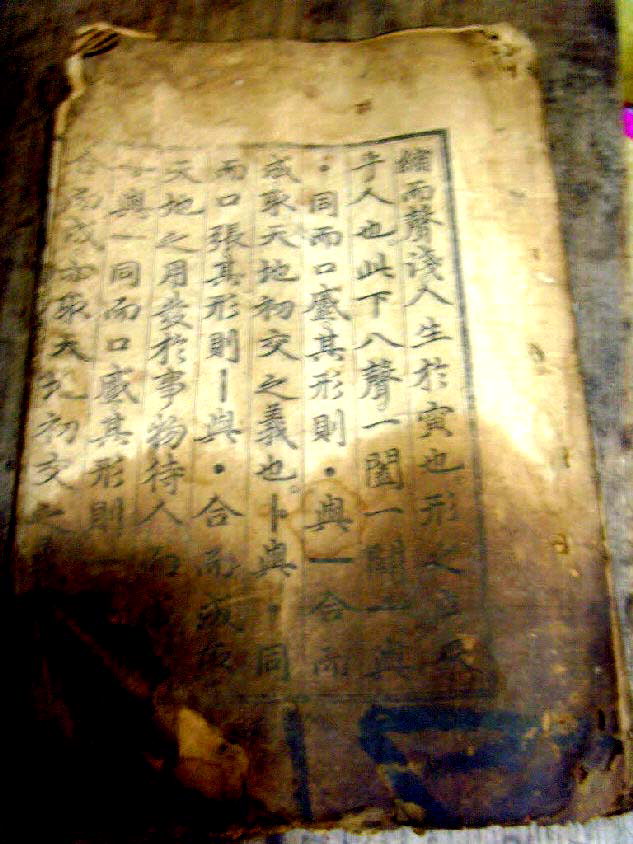 縮而聲淺人生於寅也形之立象
乎人也此下八聲一闔一闢ㅗ與
ㆍ同而口蹙其形則ㆍ與ㅡ合而
成取天地初交之義也ㅏ與ㆍ同
而口張其形則ㅣ與ㆍ合而成取
天地之用發於事物待人而
ㅜ與ㅡ同而口蹙其形則ㅡ
合而成亦取天地初交之